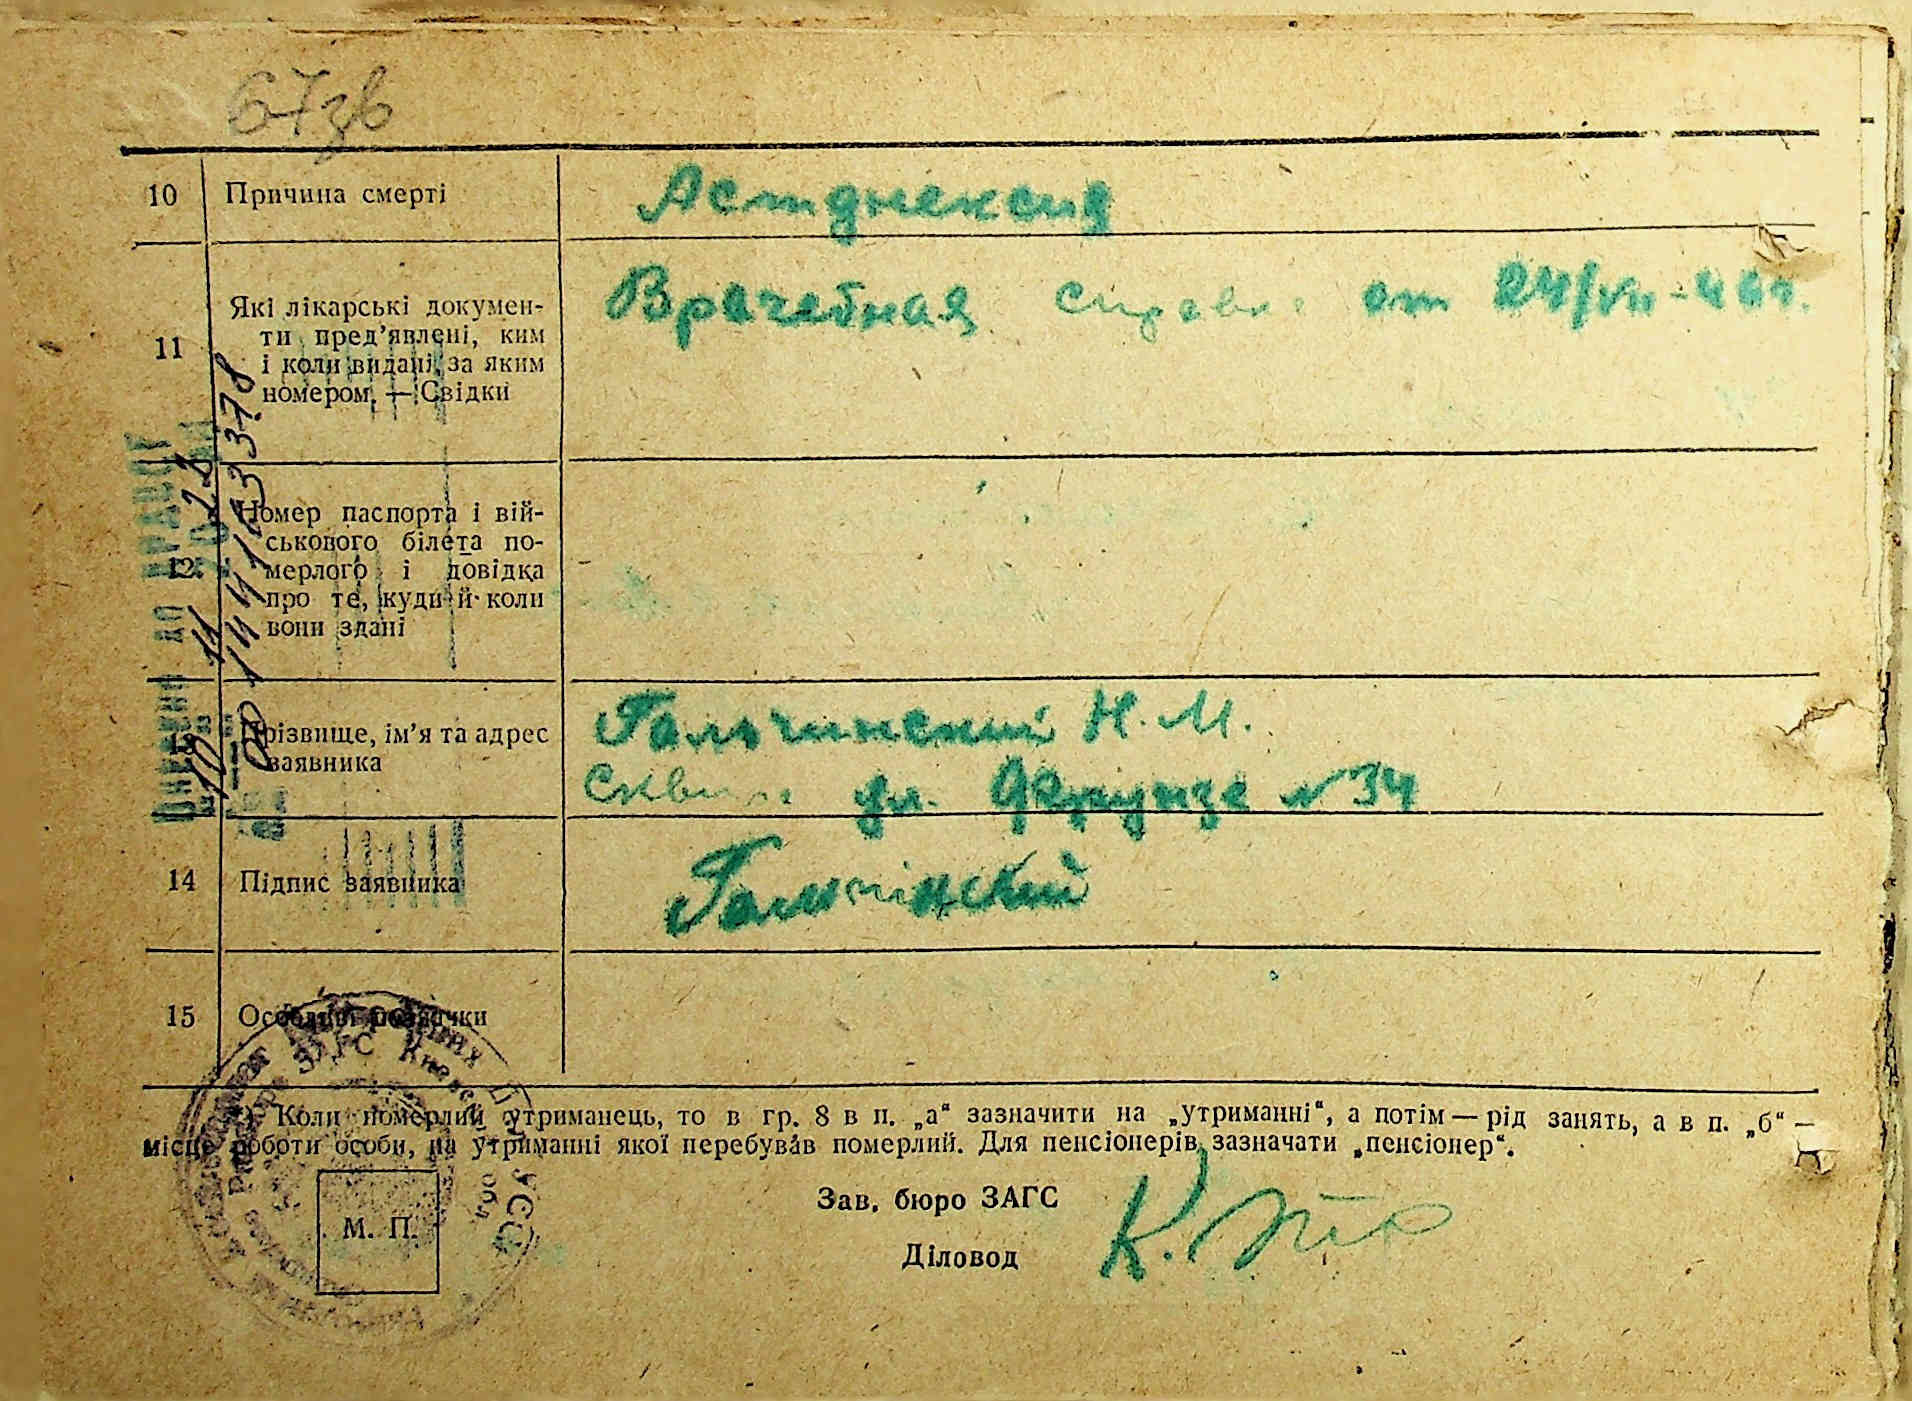 67зв
10 Причина смерті
Врачебная справка от 24/VII-46г.
11 Які лікарські докумен-
ти пред’явлені, ким
і коли видані, за яким
номером. — Свідки
12 Номер паспорта і вій-
ськового білета по-
мерлого і довідка
про те, куди й коли
вони здані
13 Прізвище, ім’я та адрес
заявника
Гальчинский Н. М.
Сквира ул. Фрунзе №34
14 Підпис заявника
Гальчинский
15 Особливі позначки
*) Коли померлий утриманець, то в гр. 8 в п. „а“ зазначити на „утриманні“, а потім — рід занять, а в п. „б“ —
місце роботи особи, на утриманні якої перебував померлий. Для пенсіонерів зазначати „пенсіонер“.
Зав. бюро ЗАГС
Діловод
М. П.